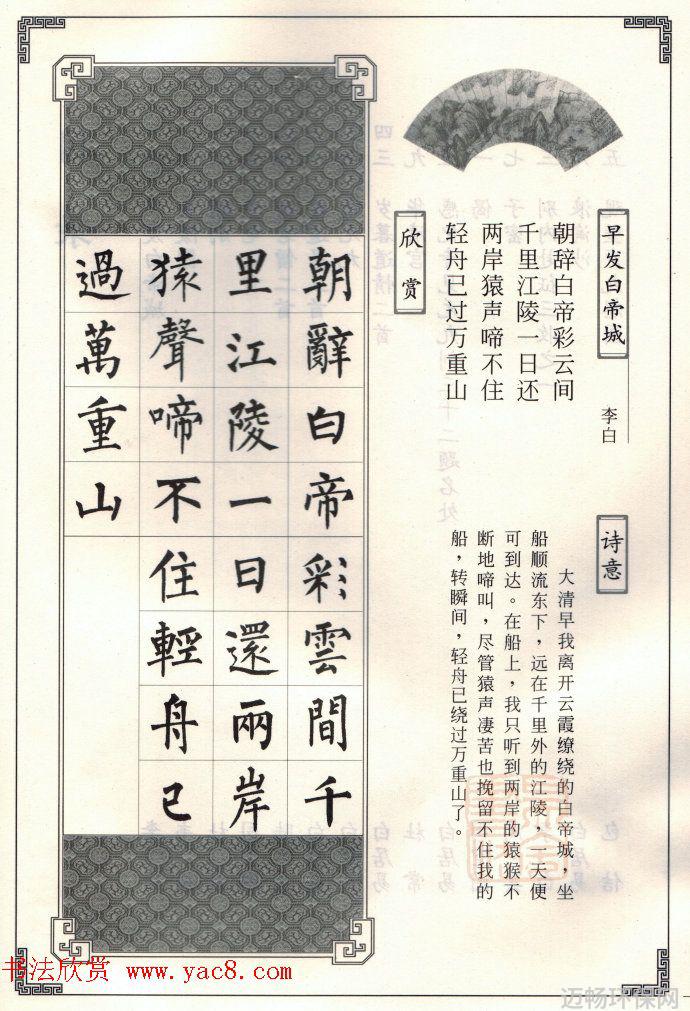 早发白帝城
李白
朝辞白帝彩云间
千里江陵一日还
两岸猿声啼不住
轻舟已过万重山
欣赏
诗意
大清早我离开云霞缭绕的白帝城，坐
船顺流东下，远在千里外的江陵，一天便
可到达。在船上，我只听到两岸的猿猴不
断地啼叫，尽管猿声凄苦也挽留不住我的
船，转瞬间，轻舟已绕过万重山了。
朝辭白帝彩雲間千
里江陵一日還兩岸
猿聲啼不住輕舟已
過萬重山
书法欣赏 www.yac8.com
迈畅环保网